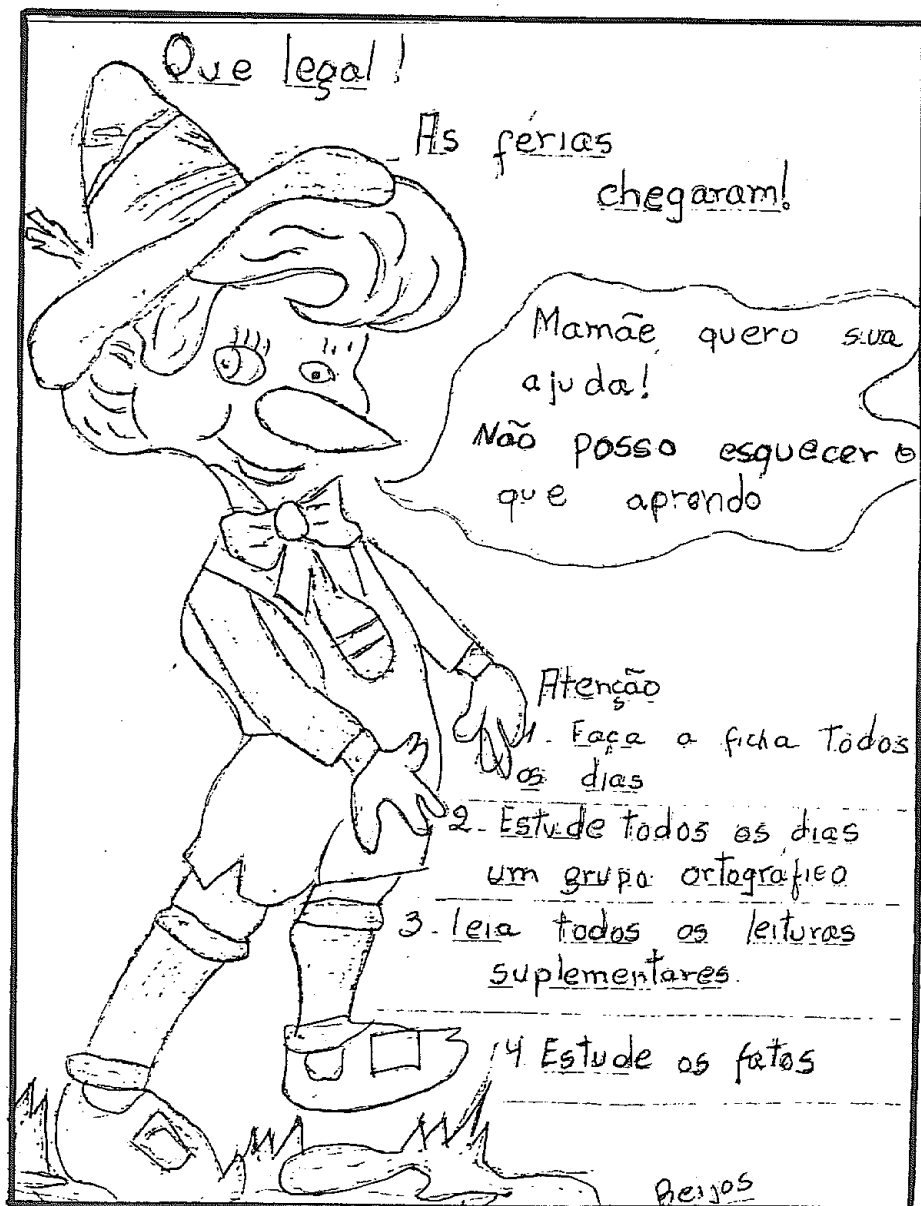 Que legal!
As férias
chegaram!
Mamãe quero sua
ajuda!
Não posso esquecer o
que aprendo
Atenção
1. Faça a ficha Todos
os dias
2- Estude todos os dias
um grupo ortográfico
3- leia todos os leituras
suplementares.
4 Estude os fatos
Beijos